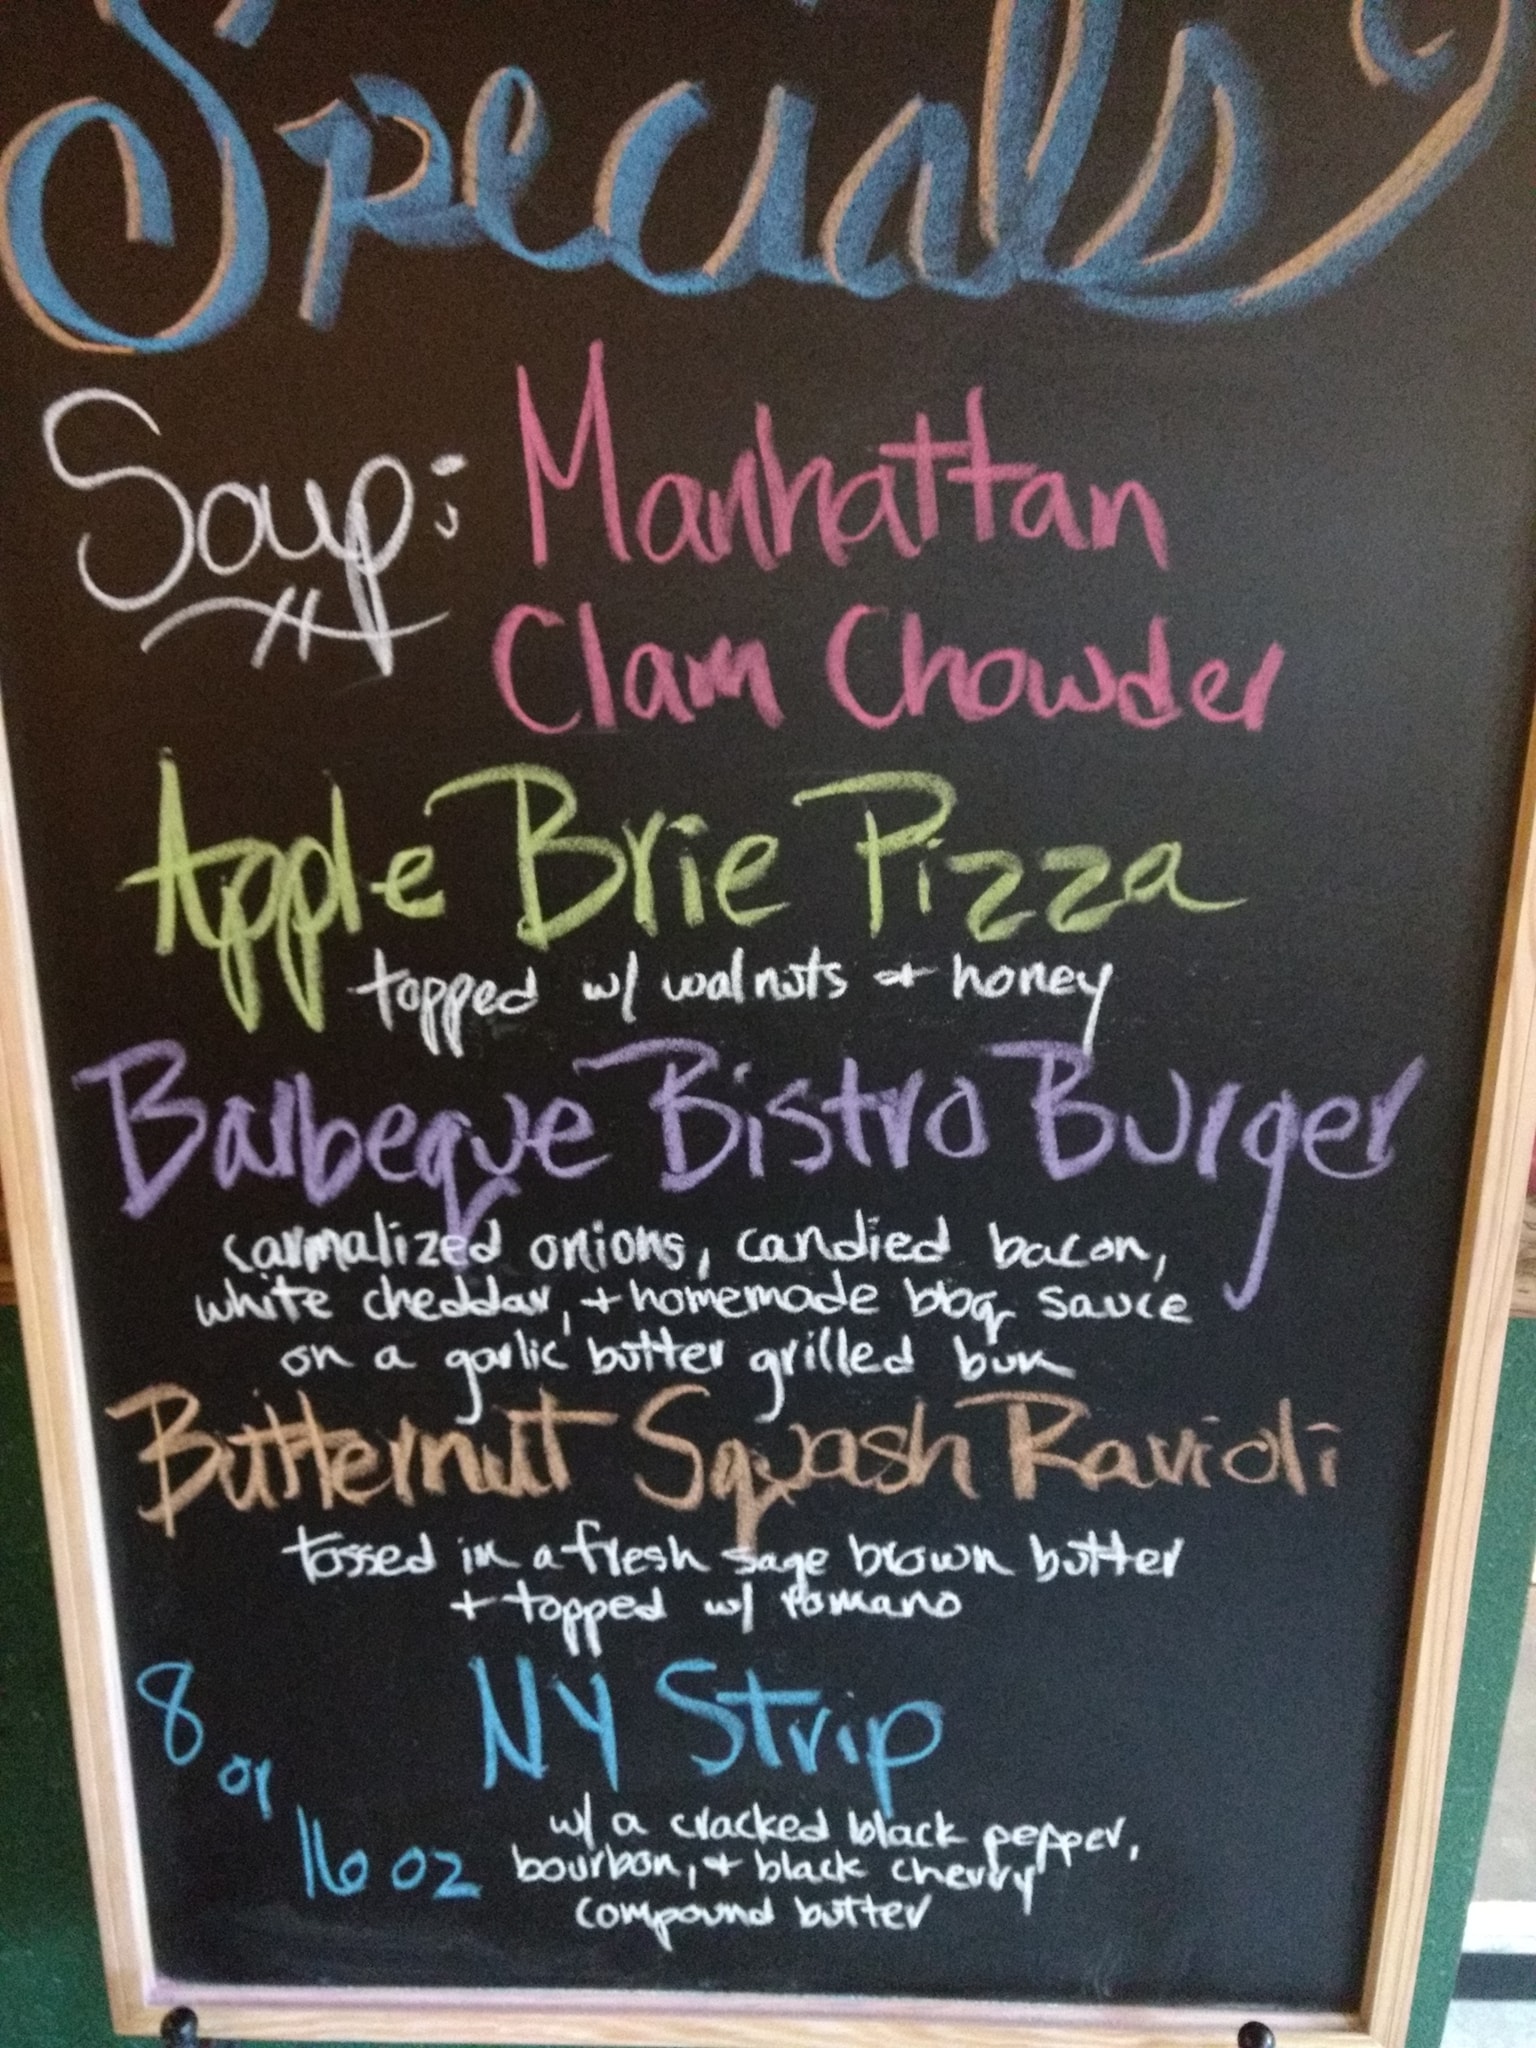 Specials
Soup: Manhattan
Clam Chowder
Apple Brie Pizza
topped w/ walnuts + honey
Barbeque Bistro Burger
carmalized onions, candied bacon,
white cheddar, + homemade bbq sauce
on a garlic butter grilled bun
Butternut Squash Ravioli
tossed in a fresh sage brown butter
+ topped w/ romano
8 or 16 oz NY Strip
w/ a cracked black pepper,
bourbon, + black cherry
compound butter